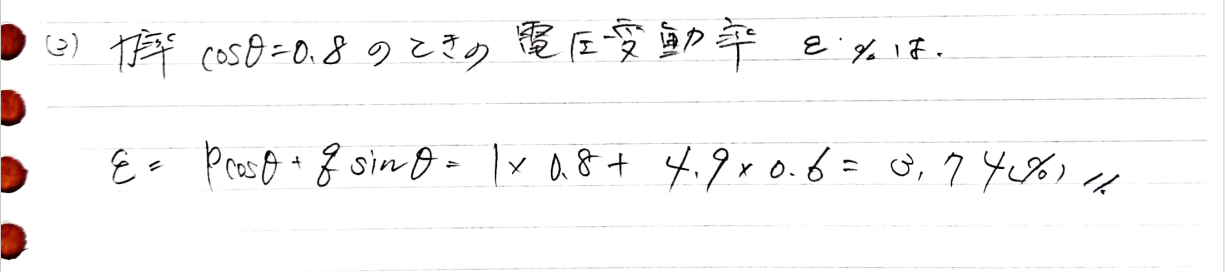 (3) 力率 cosθ=0.8 のときの 電圧変動率 ε % は.
ε = pcosθ + q sinθ = 1 × 0.8 + 4.9 × 0.6 = 3.74(%) //